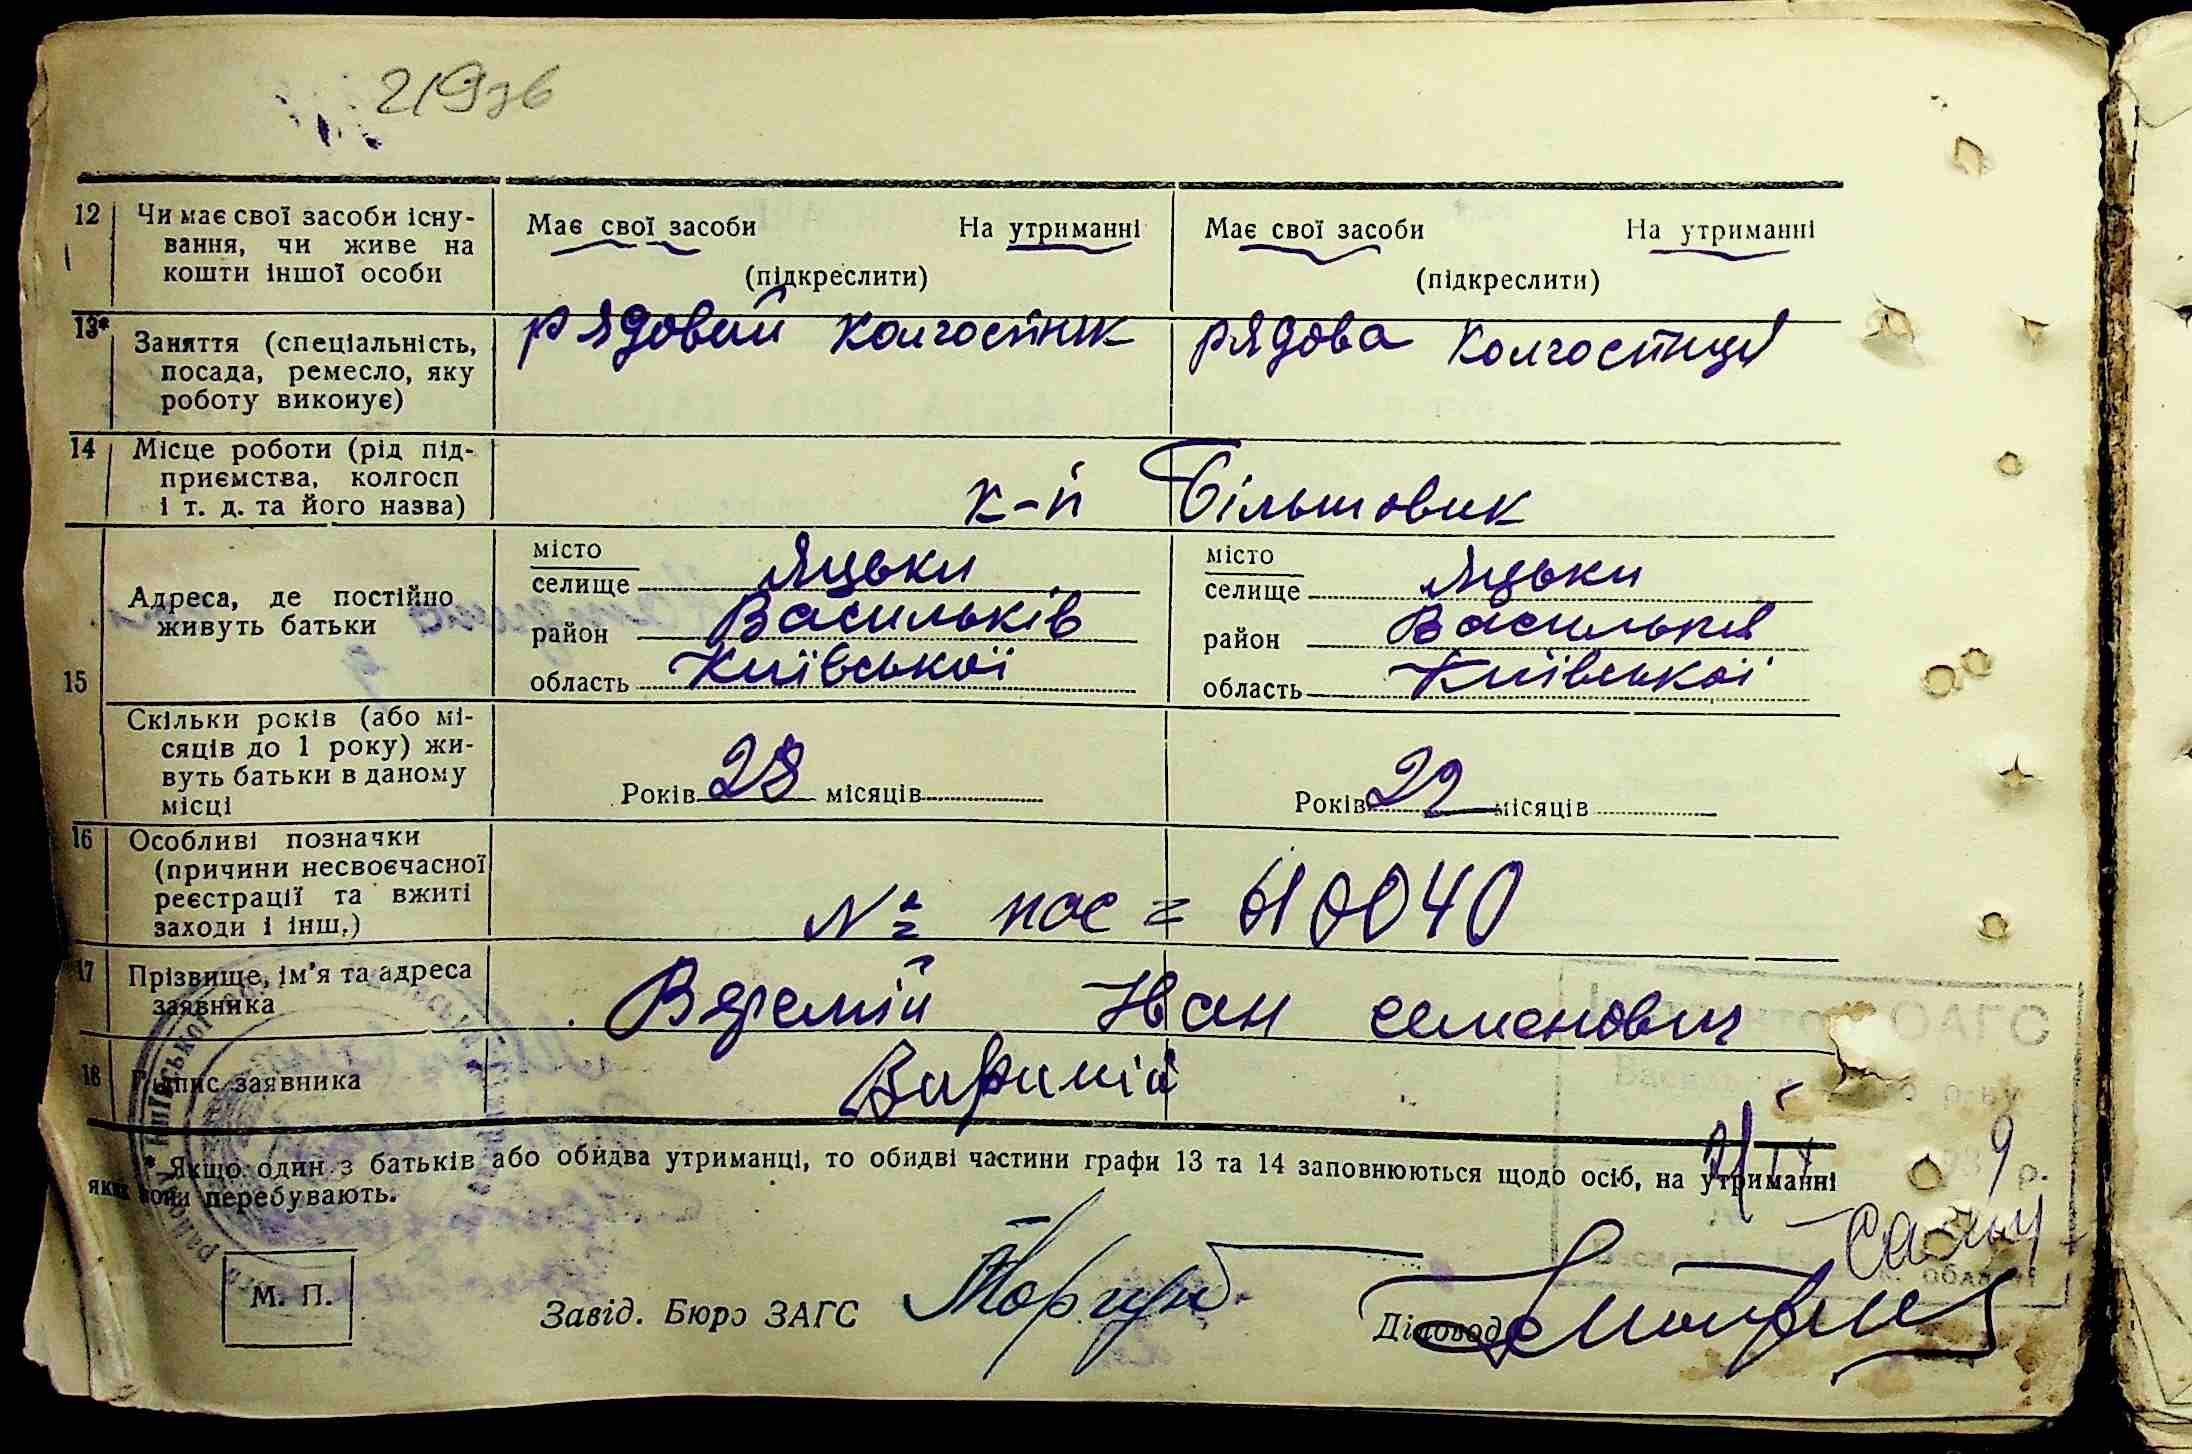 219зв
12 Чи має свої засоби існу-
вання, чи живе на
кошти іншої особи
Має свої засоби На утриманні
(підкреслити)
Має свої засоби На утриманні
(підкреслити)
13* Заняття (спеціальність,
посада, ремесло, яку
роботу виконує)
рядовий колгоспник
рядова колгоспниця
14 Місце роботи (рід під-
приємства, колгосп
і т. д. та його назва)
к-п Більшовик
15
Адреса, де постійно
живуть батьки
місто
селище Яцьки
район Васильків
область Київської
місто
селище Яцьки
район Васильків
область Київської
Скільки років (або мі-
сяців до 1 року) жи-
вуть батьки в даному
місці
Років 28 місяців
Років 22 місяців
16 Особливі позначки
(причини несвоєчасної
реєстрації та вжиті
заходи і інш.)
№ пас = 610040
17 Прізвище, ім'я та адреса
заявника
Веремій Іван Семенович
18 Підпис заявника
Виримій
* Якщо один з батьків або обидва утриманці, то обидві частини графи 13 та 14 заповнюються щодо осіб, на утриманні
яких вони перебувають.
М. П.
Завід. Бюро ЗАГС
Діловод
ОАГС
р-ну
9 р.